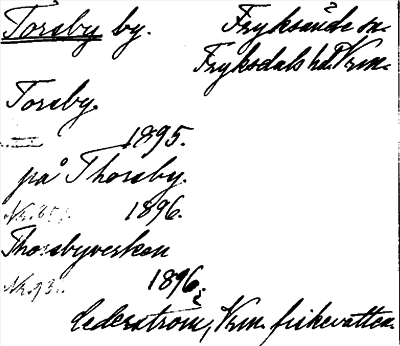 Torsby by. Fryksände sn.
Fryksdals hd. Vrm.
Torsby.
1895.
på Thorsby.
1896.
Thorsbyverken
1896.
Cederström, Vrm. fiskevatten.